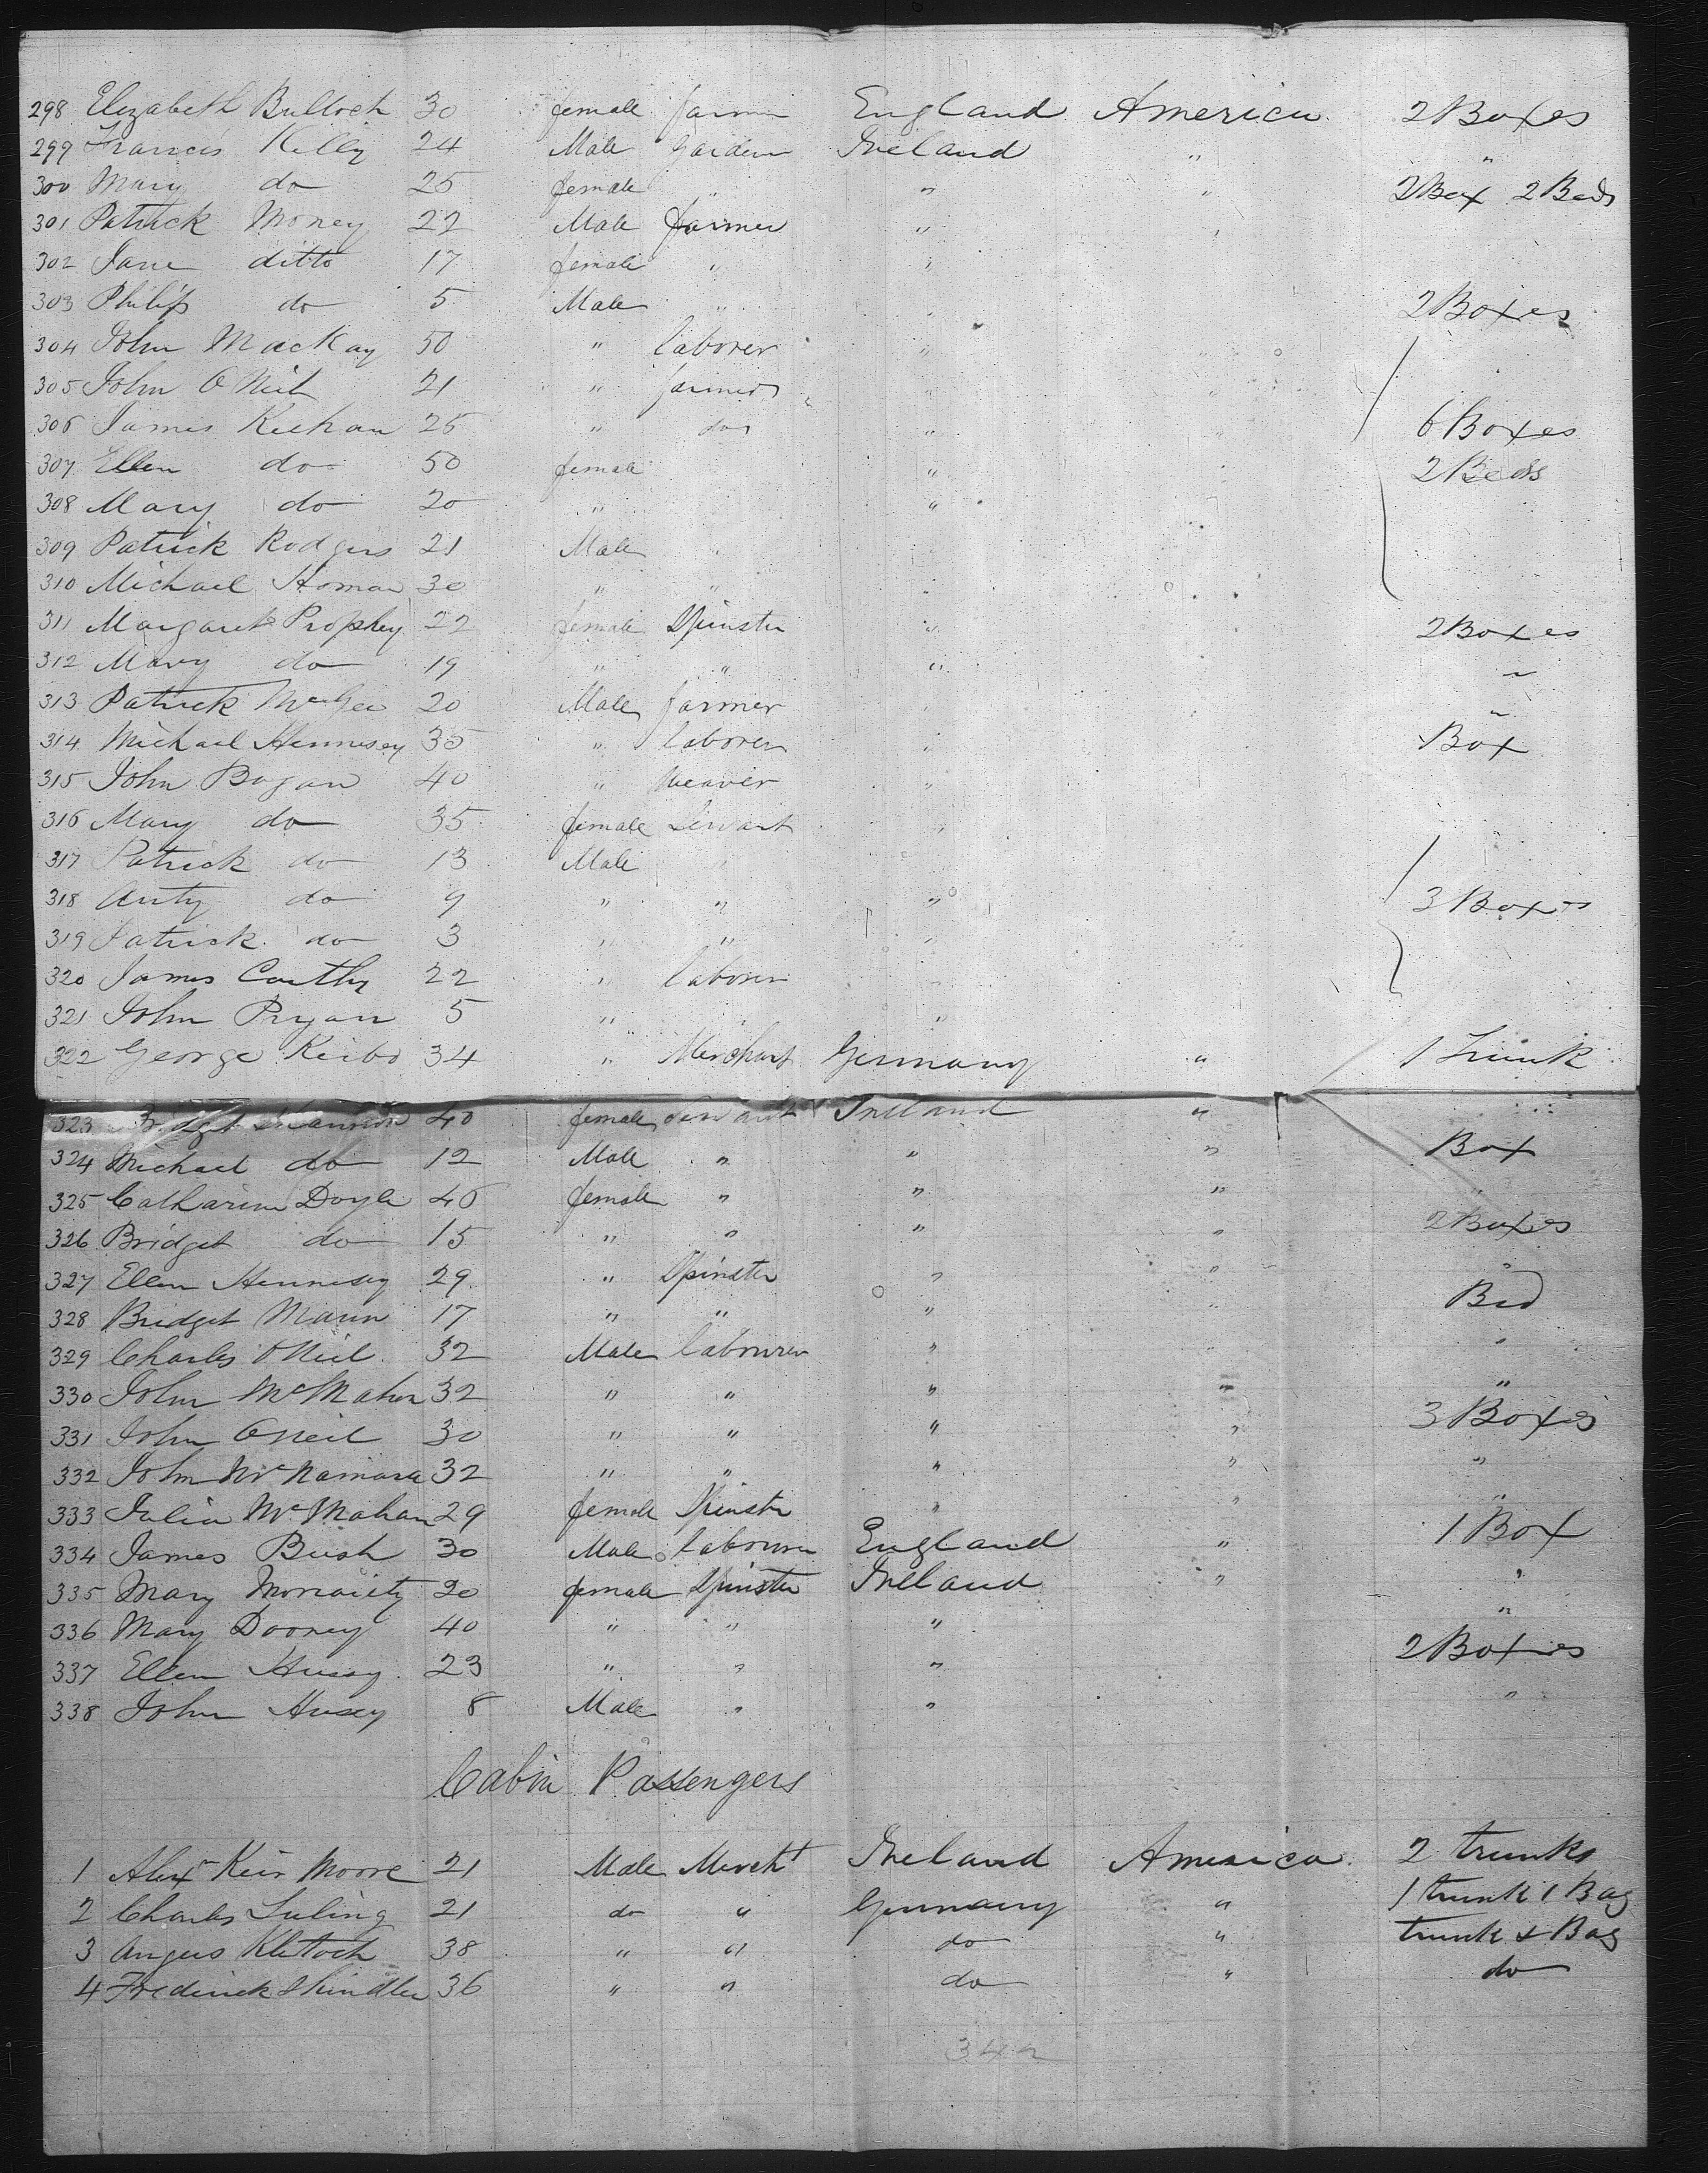 298 Elizabeth Bulloch 30 female farmer England America 2 Boxes
299 Francis Kelly 24 Male Gardener Ireland " "
300 Mary do 25 female " " " 2 Box 2 Beds
301 Patrick Money 22 Male farmer " "
302 Jane ditto 17 female " "
303 Philip do 5 Male " " 2 Boxes
304 John MacKay 50 " laborer "
305 John O Neil 21 " farmer "
306 James Keehan 25 " do " 6 Boxes
307 Ellen do 50 female " 2 Beds
308 Mary do 20 " "
309 Patrick Rodgers 21 Male " "
310 Michael Homan 30 " " "
311 Margaret Prophey 22 female Spinster " 2 Boxes
312 Mary do 19 " " " "
313 Patrick McGee 20 Male farmer " "
314 Michael Hennesey 35 " laborer " Box
315 John Bogan 40 " Weaver "
316 Mary do 35 female Servant "
317 Patrick do 13 Male " "
318 Anty do 9 " " " 3 Boxes
319 Patrick do 3 " " "
320 James 22 " laborer "
321 John Pryan 5 " " "
322 George Keibo 34 " Merchant Germany " 1 Trunk
323 Bridget 40 female Servant Ireland "
324 Michael do 12 Male " " " Box
325 Catharine Doyle 45 female " " " "
326 Bridget do 15 " " " " 2 Boxes
327 Ellen Hennesey 29 " Spinster " " "
328 Bridget Mann 17 " " " " Bed
329 Charles O Neil 32 Male labourer " " "
330 John McMahon 32 " " " " "
331 John O Neil 30 " " " " 3 Boxes
332 John McNamara 32 " " " " "
333 Julia McMahan 29 female Spinster " " "
334 James Bush 30 Male labourer England " 1 Box
335 Mary Moriaiety 20 female Spinster Ireland " "
336 Mary Dooney 40 " " " "
337 Ellen Husey 23 " " " 2 Boxes
338 John Husey 8 Male " " "
Cabin Passengers
1 Alexr Keir Moore 21 Male Mercht Ireland America 2 trunks
2 Charles Luling 21 do " Germany " 1 trunk 1 Bag
3 Angus 38 " " do " trunk & Bag
4 Frederick Shindler 36 " " do " do
342